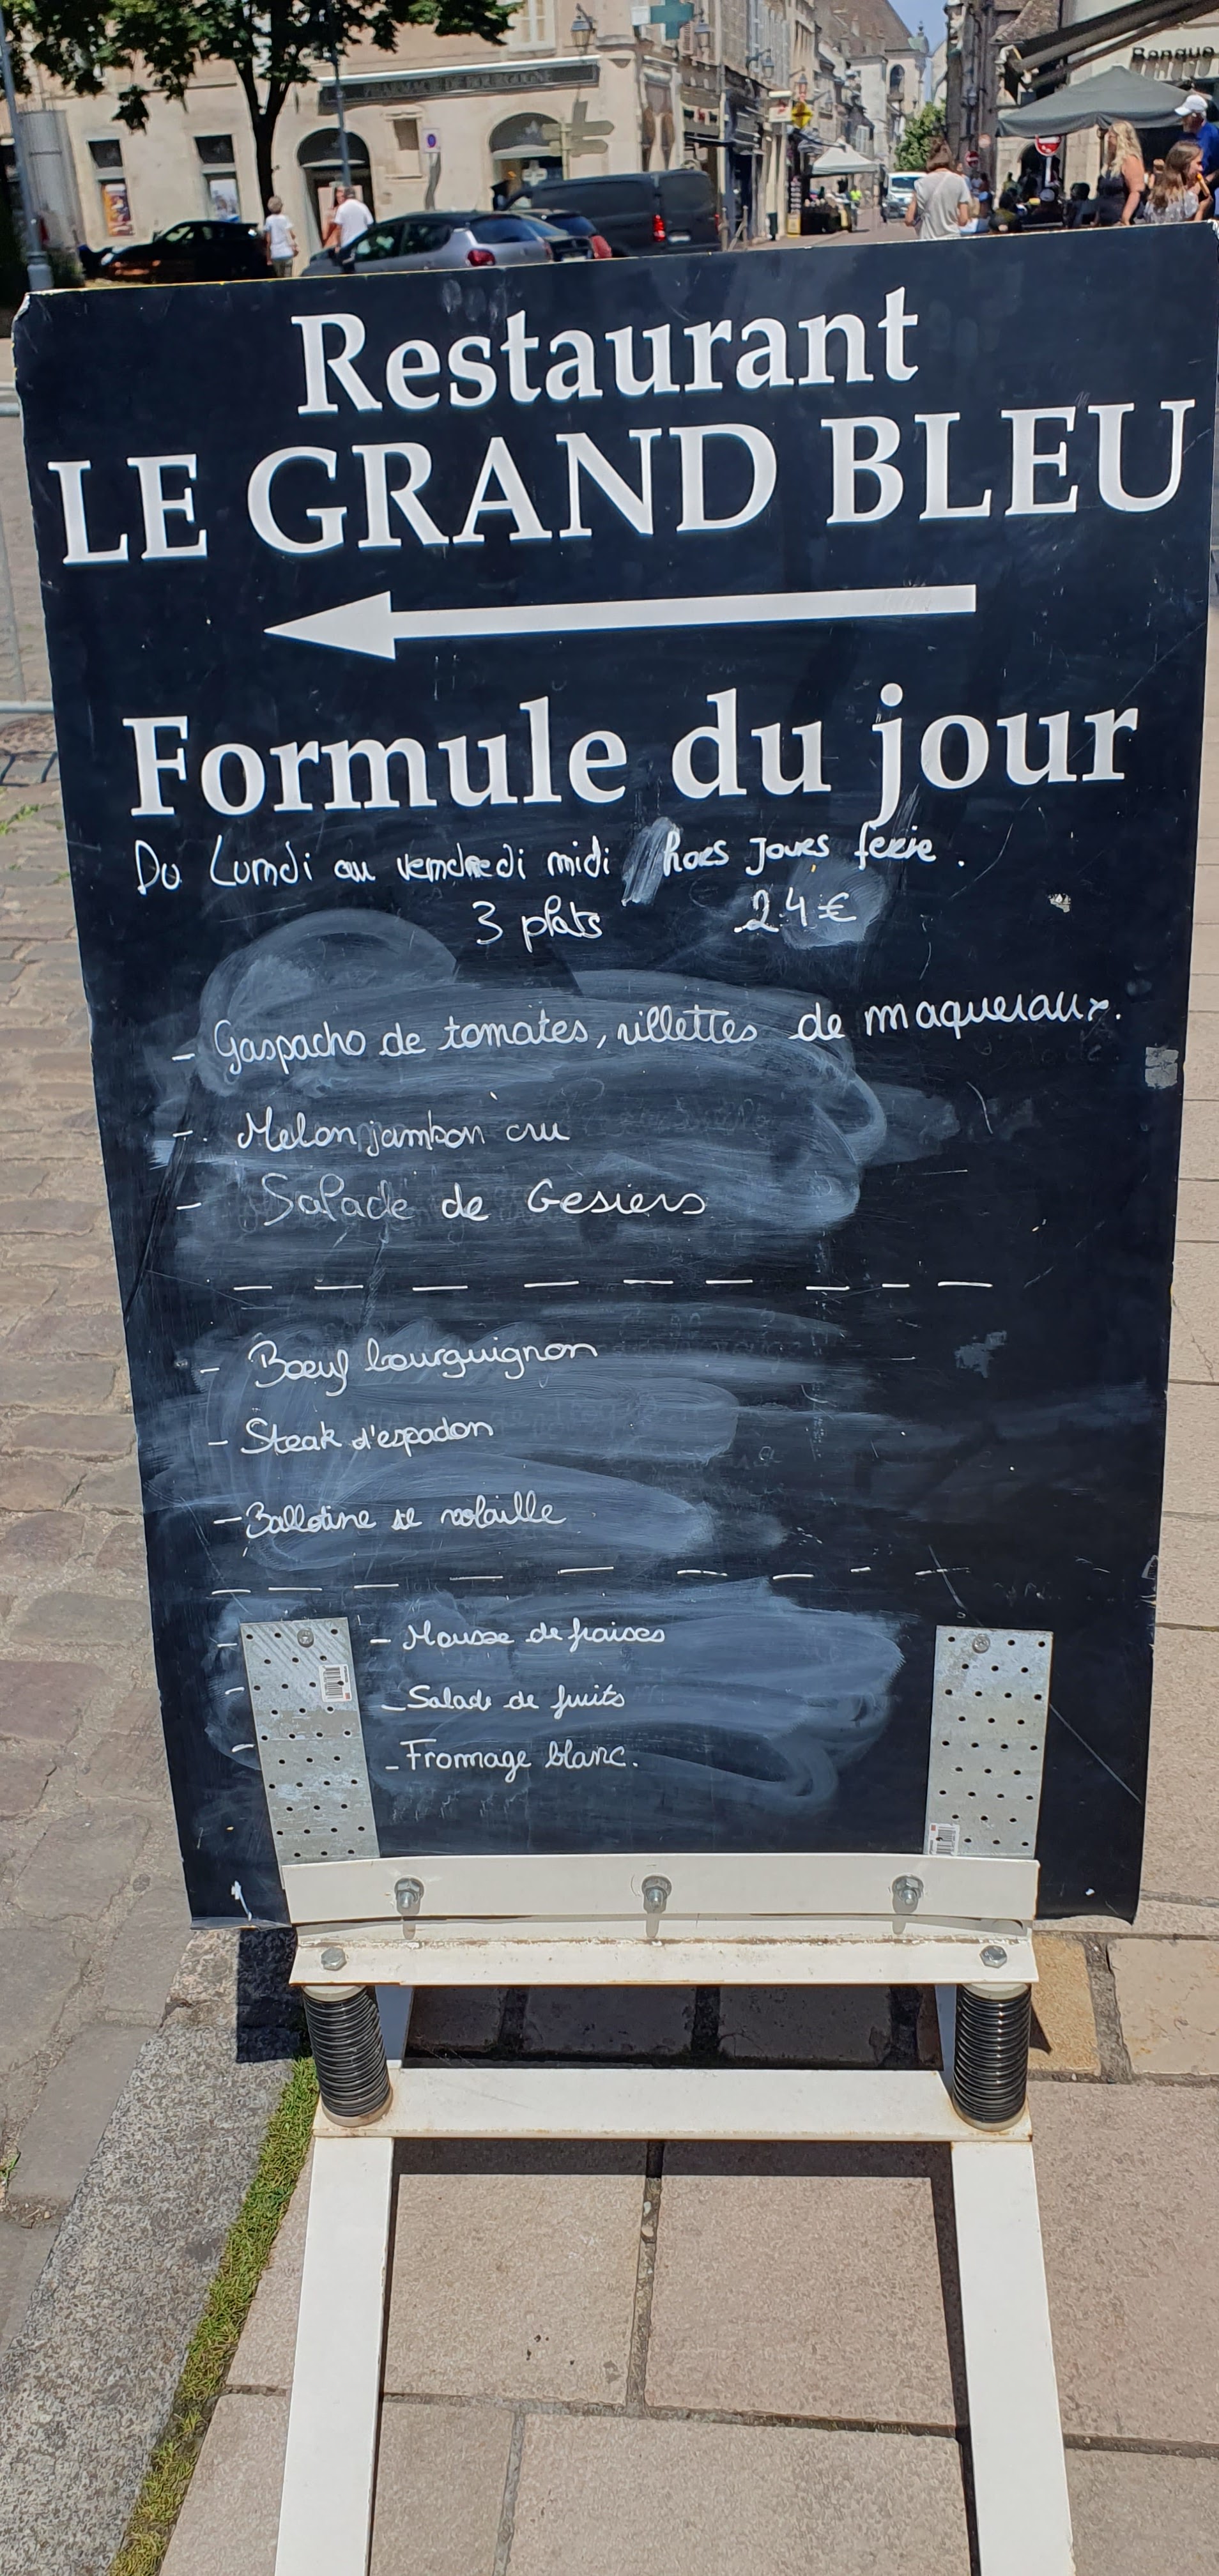 Banque
Restaurant
LE GRAND BLEU
Formule du jour
Du Lundi au vendredi midi hors jours ferie.
3 plats 24€
- Gaspacho de tomates, rillettes de maqueraux.
- Melon jambon cru
- Salade de Gesiers
- Bœuf bourguignon
- Steak d'espadon
- Ballotine de volaille
- Mousse de fraises
- Salade de fruits
- Fromage blanc.